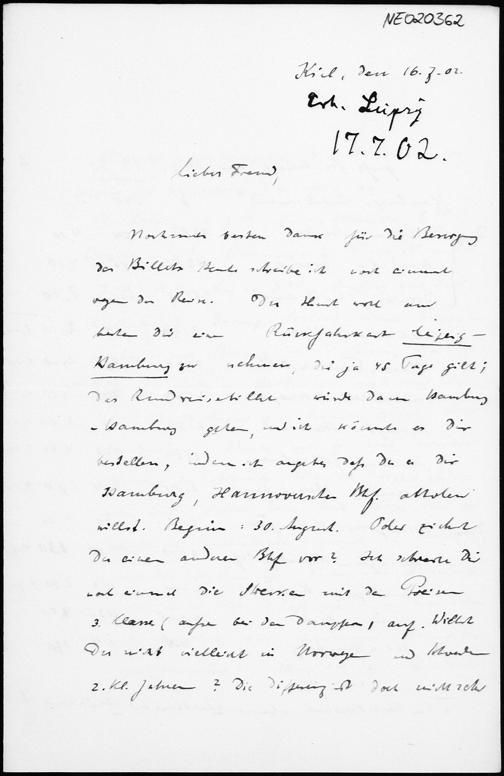 NEO20362
Kiel, den 16.7.02.
Erh. Leipzig
17.7.02.
Lieber Freund,
Nochmals besten Dank für die Besorgung
des Billets. Heute schreibe ich noch einmal
wegen der Reise. Du thust wohl am
besten Dir eine Rückfahrkarte Leipzig-
Hamburg zu nehmen, die ja 45 Tage gilt;
das Rundreisebillet würde dann Hamburg
-Hamburg gehen, und ich könnte es Dir
bestellen, indem ich angebe, daß Du es Dir
Hamburg, Hannoverscher Bhf. abholen
willst. Beginn: 30. August. Oder ziehst
Du einen anderen Bhf vor? Ich schreibe Dir
noch einmal die Strecken mit den Preisen
3. Klasse (außer bei den Dampfern) auf. Willst
Du nicht vielleicht in Norwegen und Schweden
2. Kl. fahren? Die Differenz ist doch nicht sehr